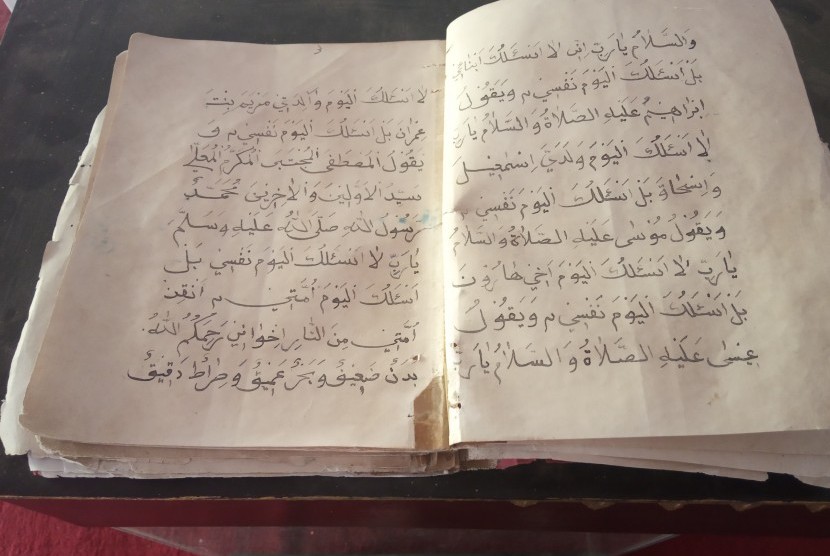 وَالسَّلاَمُ يَارَبِّ اِنِّى لاَ اَسْئَلُكَ
بَلْ اَسْئَلُكَ الْيَوْمَ نَفْسِي م وَيَقُولُ
اِبْرَاهِيمُ عَلَيْهِ الصَّلاَةُ وَالسَّلاَمُ يَارَبِّ
لاَ اَسْئَلُكَ الْيَوْمَ وَلَدَيَّ اِسْمٰعِيلَ
وَاِسْحَاقَ بَلْ اَسْئَلُكَ الْيَوْمَ نَفْسِي م
وَيَقُولُ مُوسٰى عَلَيْهِ الصَّلاَةُ وَالسَّلاَمُ
يَارَبِّ لاَ اَسْئَلُكَ الْيَوْمَ اَخِي هَارُونَ
بَلْ اَسْئَلُكَ الْيَوْمَ نَفْسِي م وَيَقُولُ
عِيسٰى عَلَيْهِ الصَّلاَةُ وَالسَّلاَمُ يَارَبِّ
3
لاَ اَسْئَلُكَ الْيَوْمَ وَالِدَتِي مَرْيَمَ بِنْتَ
عِمْرَانَ بَلْ اَسْئَلُكَ الْيَوْمَ نَفْسِي م وَ
يَقُولُ الْمُصْطَفٰى الْمُجْتَبٰى الْمُكَرَّمُ الْمُعَلّٰى
سَيِّدُ الْاَوَّلِينَ وَالْاٰخِرِينَ مُحَمَّدٌ
رَسُولُ اللّٰهِ صَلَّى اللّٰهُ عَلَيْهِ وَسَلَّمَ
يَارَبِّ لاَ اَسْئَلُكَ الْيَوْمَ نَفْسِي بَلْ
اَسْئَلُكَ الْيَوْمَ اُمَّتِي م اَنْقِذْ
اُمَّتِي مِنَ النَّارِ اِخْوَانِي رَحِمَكُمُ اللّٰهُ
بَدَنٌ ضَعِيفٌ وَبَحْرٌ عَمِيقٌ وَصِرَاطٌ دَقِيقٌ